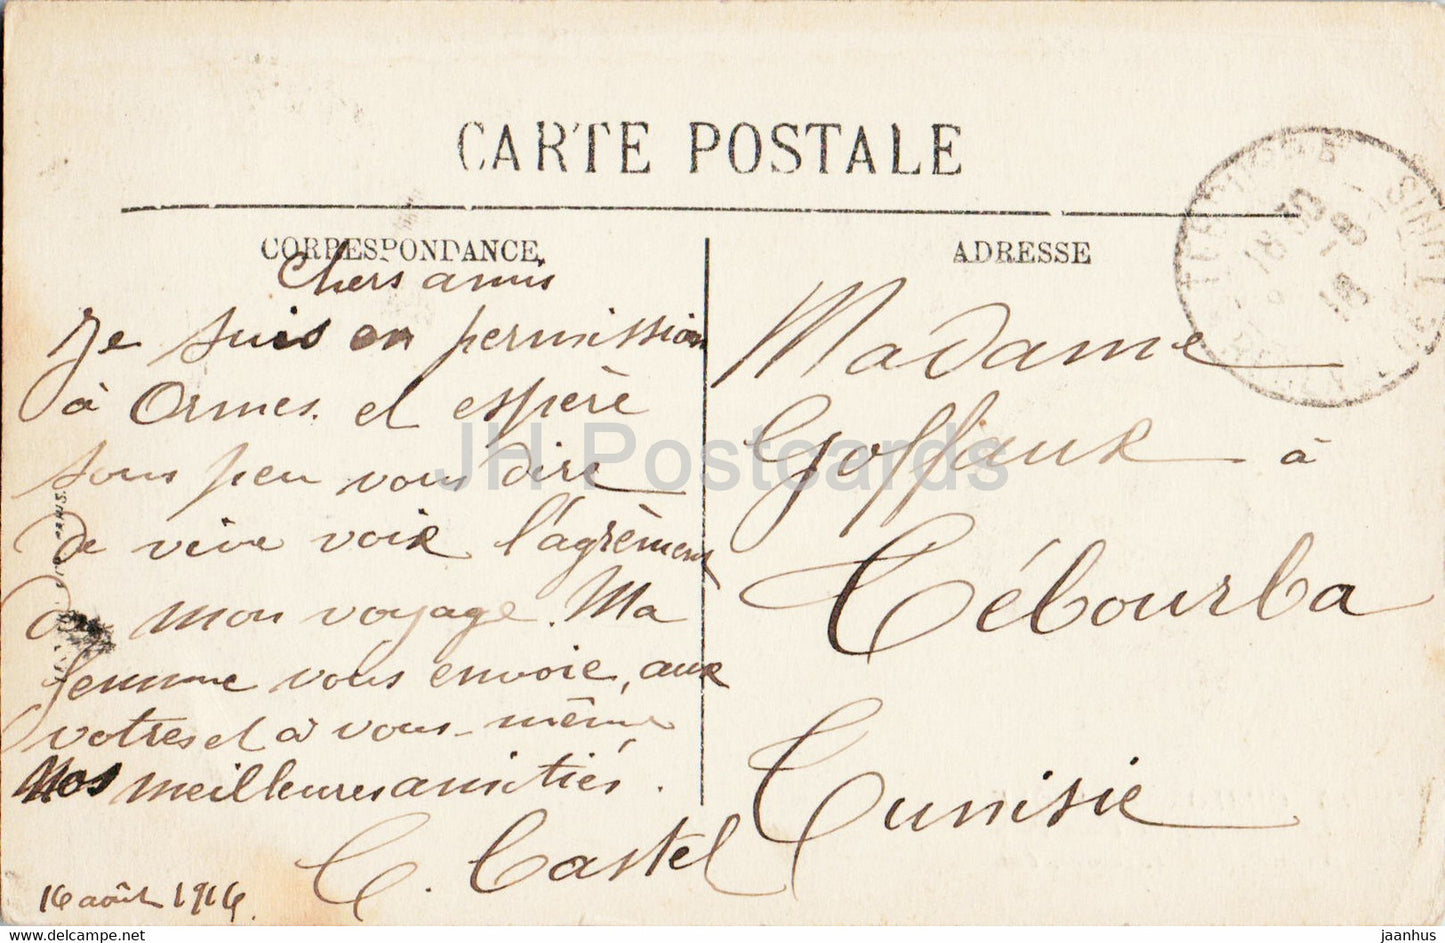 CARTE POSTALE
CORRESPONDANCE
Chers amis
Je suis en permission
à Ormes. et espère
sous peu vous dire
de vive voix l'agrèment
de mon voyage. Ma
femme vous envoie, aux
votres et à vous-même
Nos meilleures amitiés.
C. Castel
16 août 1916.
ADRESSE
Madame
Goffaux à
Tébourba
Tunisie
JH Postcards
jaanhus
www.jhpostcards.com